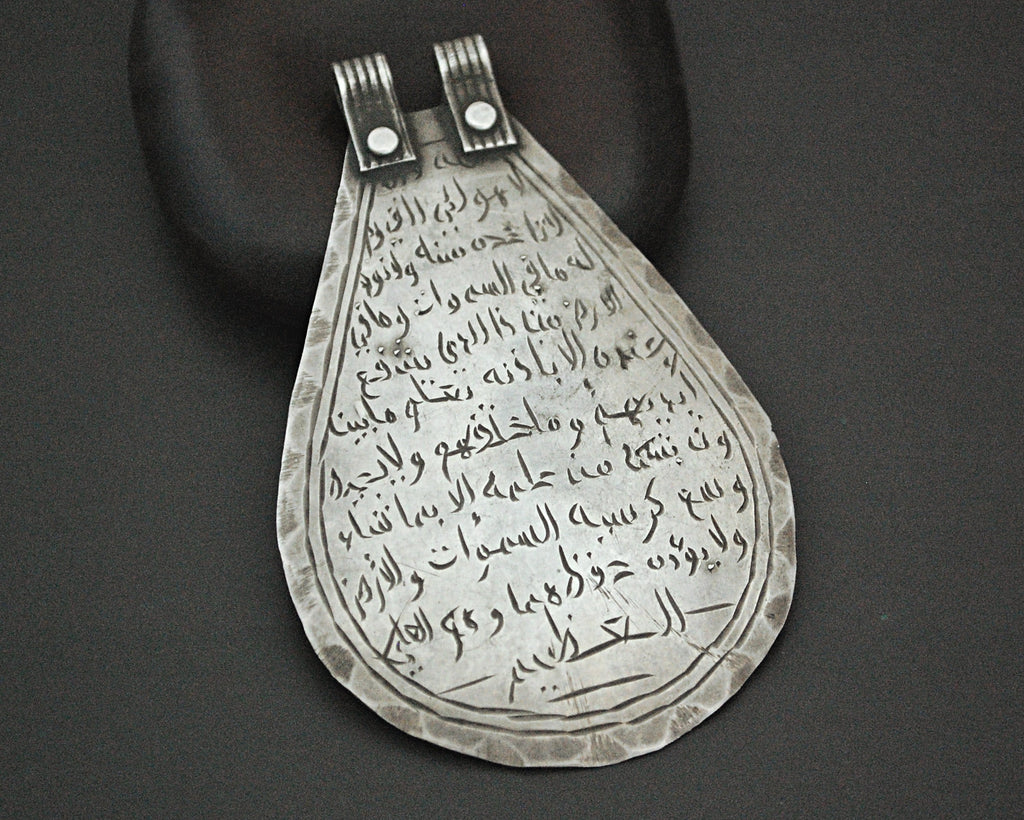 لا هو الحي القيوم
لا تاخذه سنة ولا نوم
له ما في السموات وما في
الارض من ذا الذي يشفع
عنده إلا باذنه يعلم ما بين
ايديهم وما خلفهم ولا يحيط
ون بشئ من علمه الا بما شاء
وسع كرسيه السموات والأرض
ولا يؤده حفظهما وهو العلي
العظيم